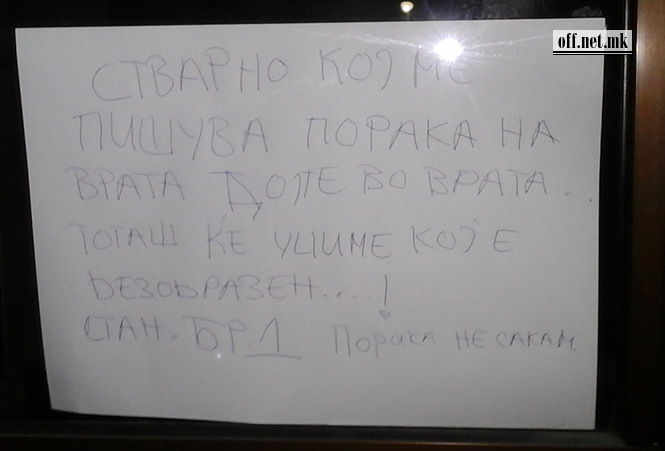 off.net.mk
СТВАРНО КОЈ МЕ
ПИШУВА ПОРАКА НА
ВРАТА ДОЛЕ ВО ВРАТА..
ТОГАШ ЌЕ УЦИМЕ КОЈ Е
БЕЗОБРАЗЕН....!
СТАН. БР.1 ПОРАКА НЕ САКАМ.